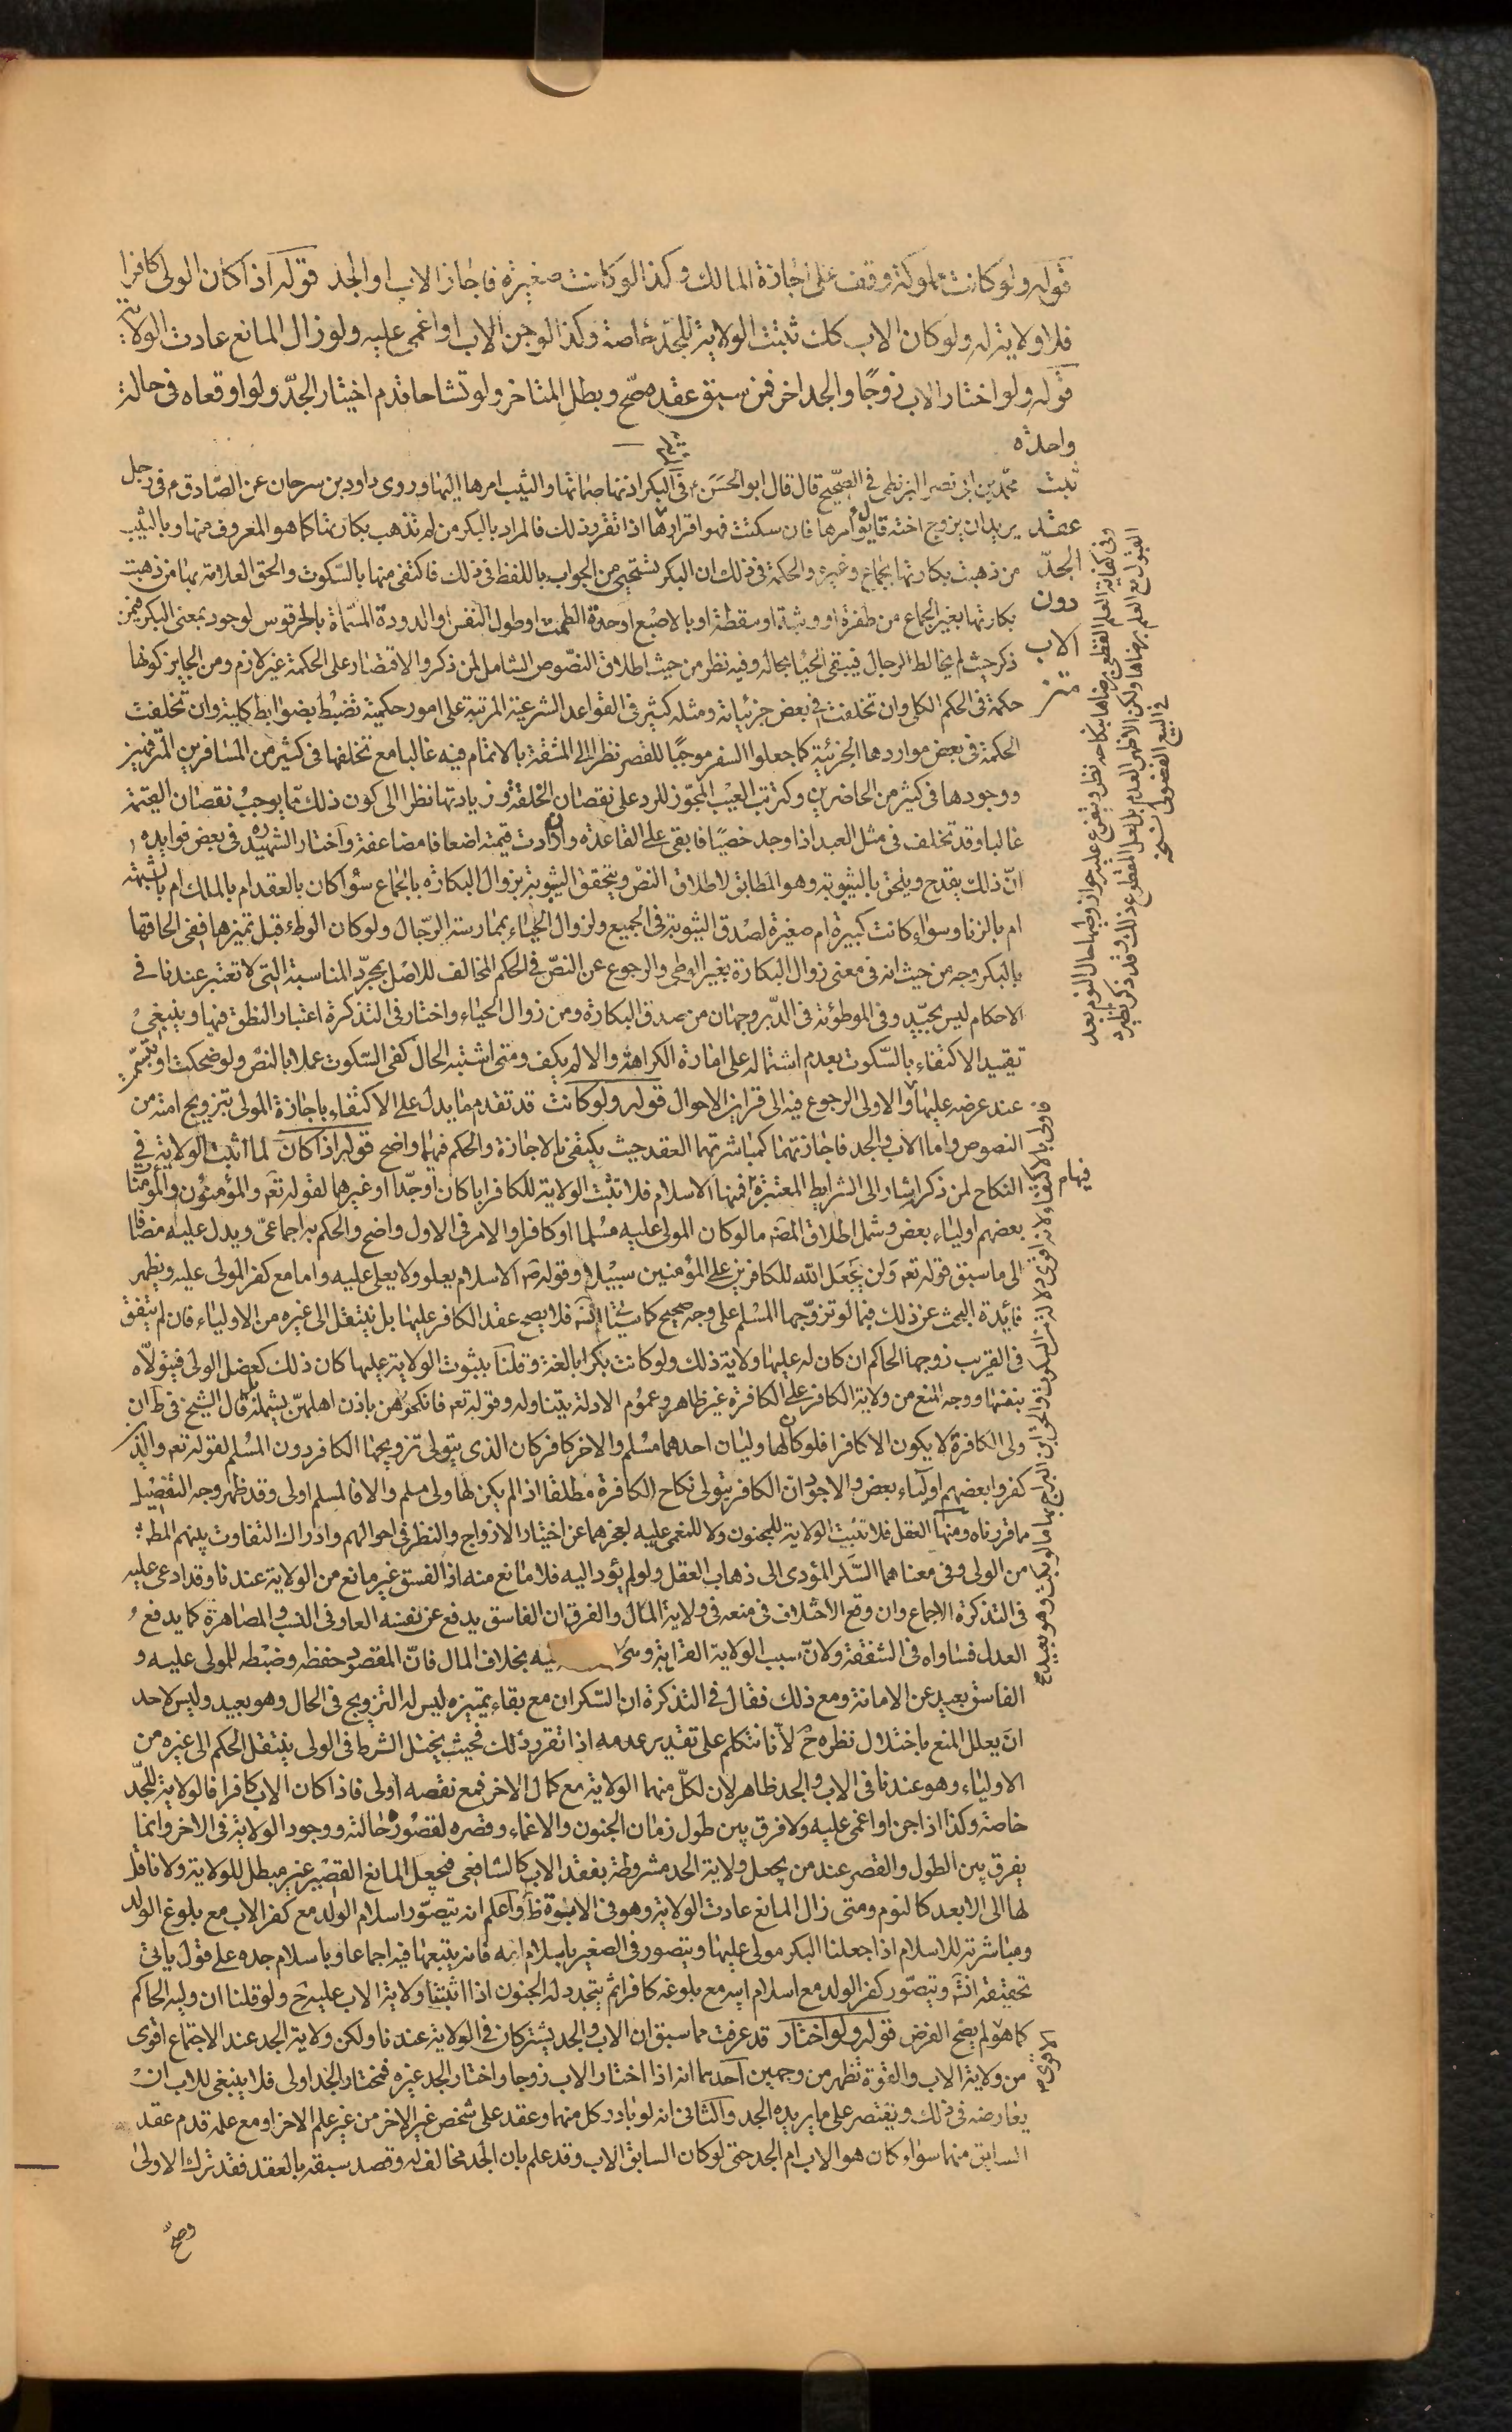 قوله ولو كانت مملوكة وقف على اجازة المالك وكذا لو كانت صغيرة فاجاز الاب او الجد قوله اذا كان الولى كافرا
فلا ولاية له ولو كان الاب كك ثبتت الولاية للجد خاصة وكذا لو جن الاب او اغمى عليه ولو زال المانع عادت الولاية
قوله ولو اختار الاب زوجًا والجد اخر فمن سبق عقده صحّ وبطل المتاخر ولو تشاحا قدم اختيار الجدّ ولو اوقعاه فى حالة
واحدة
ثبت
عقد
الجدّ
دون
الاب
متن
محمّد بن ابى نصر البزنطى فى الصّحيح قال قال ابو الحسن ع فى البكر اذنها صماتها والثيب امرها اليها وروى داود بن سرحان عن الصّادق م فى رجل
يريد ان يزوج اخته قال يؤامرها فان سكتت فهو اقرارها اذا تقرر ذلك فالمراد بالبكر من لم تذهب بكارتها كما هو المعروف منها وبالثيب
من ذهبت بكارتها بجماع وغيره والحكمة فى ذلك ان البكر تستحيي من الجواب باللفظ فى ذلك فاكتفى منها بالسّكوت والحق العلامة بها من ذهبت
بكارتها بغير الجماع من طفرة او وثبة او سقطة او بالاصبع او حدة الطمث او طول التعنس او الدودة المسّماة بالحرقوص لوجود معنى البكر فيمن
ذكر حيث لم تخالط الرجال فيبقى الحيا بحاله وفيه نظر من حيث اطلاق النصّوص الشامل لمن ذكر والاقتصار على الحكمة غير لازم ومن الجايز كونها
حكمة فى الحكم الكلى وان تخلفت فى بعض جزئياته ومثله كثير فى القواعد الشرعية المرتبة على امور حكمية تضبط بضوابط كلية وان تخلفت
الحكمة فى بعض مواردها الجزئية كما جعلوا السفر موجبًا للقصر نظرا الى المشقة بالاتمام فيه غالبا مع تخلفها فى كثير من المسافرين المترفهين
ووجودها فى كثير من الحاضرين وكترتب العيب المجوّز للرد على نقصان الخلقة وزيادتها نظرا الى كون ذلك ممّا يوجب نقصان القيمة
غالبا وقد تخلف فى مثل العبد اذا وجد خصيًا فابقى على القاعدة وان زادت قيمته اضعافا مضاعفة واختار الشهيد ره فى بعض فوايده
انّ ذلك يقدح ويلحق بالثيوبة وهو المطابق لاطلاق النصّ ويتحقق الثيوبة بزوال البكارة بالجماع سواء كان بالعقد ام بالملك ام بالشبهة
ام بالزنا وسواء كانت كبيرة ام صغيرة لصدق الثيوبة فى الجميع ولزوال الحياء بممارسة الرّجال ولو كان الوطء قبل تميزها ففى الحاقها
بالبكر وجه من حيث انه فى معنى زوال البكارة بغير الوطى والرجوع عن النصّ فى الحكم المخالف للاصل بمجرّد المناسبة التى لا تعتبر عندنا فى
الاحكام ليس بجيّد وفى الموطؤة فى الدّبر وجهان من صدق البكارة ومن زوال الحياء واختار فى التذكرة اعتبار النطق فيها وينبغى
تقييد الاكتفاء بالسّكوت بعدم اشتماله على امارة الكراهة والا لم يكف ومتى اشتبه الحال كفى السّكوت عملا بالنصّ ولو ضحكت او تبسّمت
عند عرضه عليها والاولى الرجوع فيه الى قراين الاحوال قوله ولو كانت قد تقدم ما يدل على الاكتفاء باجازة المولى بتزويج امته من
النصوص واما الاب والجد فاجازتهما كمباشرتهما العقد حيث يكتفى بالاجازة والحكم فيهما واضح قوله اذا كان لما اثبت الولاية فى
النكاح لمن ذكر اشار الى الشرايط المعتبرة فيهم فمنها الاسلام فلا تثبت الولاية للكافر ابا كان او جدّا او غيرهما لقوله تعه والمؤمنون والمؤمنات
بعضهم اولياء بعض وشمل اطلاق المصنه ما لو كان المولى عليه مسلما او كافرا والامر فى الاول واضح والحكم به اجماعىّ ويدل عليه مضافا
الى ما سبق قوله تعه ولن يجعل الله للكافرين على المؤمنين سبيلا وقوله صم الاسلام يعلو ولا يعلى عليه واما مع كفر المولى عليه ويظهر
فائدة البحث عن ذلك فيما لو تزوّجها المسلم على وجه صحيح كما سيأتى انشه فلا يصح عقد الكافر عليها بل ينتقل الى غيره من الاولياء فان لم يتفق
فى القريب زوجها الحاكم ان كان له عليها ولاية ذلك ولو كانت بكرا بالغة وقلنا بثبوت الولاية عليها كان ذلك كعضل الولى فيتولاه
بنفسها ووجه المنع من ولاية الكافر على الكافرة غير ظاهر وعموم الادلة يتناوله وقوله تعه فانكحوهن باذن اهلهنّ يشمله قال الشيخ فى ط ان
ولى الكافرة لا يكون الا كافرا فلو كان لها وليان احدهما مسلم والاخر كافر كان الذى يتولى تزويجها الكافر دون المسلم لقوله تعه والذين
كفروا بعضهم اولياء بعض والاجود ان الكافر يتولى نكاح الكافرة مطلقا اذا لم يكن لها ولى مسلم والا فالمسلم اولى وقد ظهر وجه التفصيل
مما قررناه ومنها العقل فلا تثبت الولاية للمجنون ولا للمغمى عليه لعجزهما عن اختيار الازواج والنظر فى احوالهم وادراك التفاوت بينهم المطلوب
من الولى وفى معناهما السّكر المؤدى الى ذهاب العقل ولو لم يؤد اليه فلا مانع منه اذ الفسق غير مانع من الولاية عندنا وقد ادعى عليه
فى التذكرة الاجماع وان وقع الاختلاف فى منعه فى ولاية المال والفرق ان الفاسق يدفع عن نفسه العار فى النسب والمصاهرة كما يدفع
العدل فتساواه فى الشفقة ولانّ سبب الولاية القرابة وهى بخلاف المال فانّ المقصود حفظه وضبطه للمولى عليه و
الفاسق بعيد عن الامانة ومع ذلك فقال فى التذكرة ان السّكران مع بقاء تمييزه ليس له التزويج فى الحال وهو بعيد وليس لاحد
ان يعلل المنع باختلال نظره ح لانّا نتكلم على تقدير عدمه اذا تقرر ذلك فحيث يختل الشرط فى الولى ينتقل الحكم الى غيره من
الاولياء وهو عندنا فى الاب والجد ظاهر لان لكلّ منهما الولاية مع كمال الاخر فمع نقصه اولى فاذا كان الاب كافرا فالولاية للجدّ
خاصة وكذا اذا جن او اغمى عليه ولا فرق بين طول زمان الجنون والاغماء وقصره لقصور حالته ووجود الولاية فى الاخر وانما
يفرق بين الطول والقصر عند من يجعل ولاية الجد مشروطة بفقد الاب كالشافعى فيجعل المانع القصير غير مبطل للولاية ولا ناقل
لها الى الابعد كالنوم ومتى زال المانع عادت الولاية وهو فى الابوة ظ واعلم انه يتصوّر اسلام الولد مع كفر الاب مع بلوغ الولد
ومباشرته للاسلام اذا جعلنا البكر مولى عليها ويتصور فى الصغير باسلام امه فانه يتبعها فيه اجماعا وباسلام جده على قول ياتى
تحقيقه انشه ويتصّور كفر الولد مع اسلام ابيه مع بلوغه كافرا ثم يتجدد له الجنون اذا اثبتنا ولاية الاب عليه ح ولو قلنا ان وليه الحاكم
كما هو لم يصح الفرض قوله ولو اختار قد عرفت مما سبق ان الاب والجد يشتركان فى الولاية عندنا ولكن ولاية الجد عند الاجتماع اقوى
من ولاية الاب والقوة تظهر من وجهين احدهما انه اذا اختار الاب زوجا واختار الجد غيره فمختار الجد اولى فلا ينبغى للاب ان
يعارضه فى ذلك ويقتصر على ما يريده الجد والثانى انه لو بادر كل منهما وعقد على شخص غير الاخر من غير علم الاخر او مع علمه قدم عقد
السابق منهما سواء كان هو الاب ام الجد حتى لو كان السابق الاب وقد علم بان الجد مخالف له وقصد سبقه بالعقد فقد ترك الاولى
وصحّ
وفى كفاية العلم القطعى برضاها بنكاحه نظر ويتفرع عليه جواز وطيها حال النوم بعد
القبول مع العلم برضاها ولكن الاظهر العدم بل لعل المقطوع ذلك وقد ذكر نظيره
فى البيع الفضولى نسخة